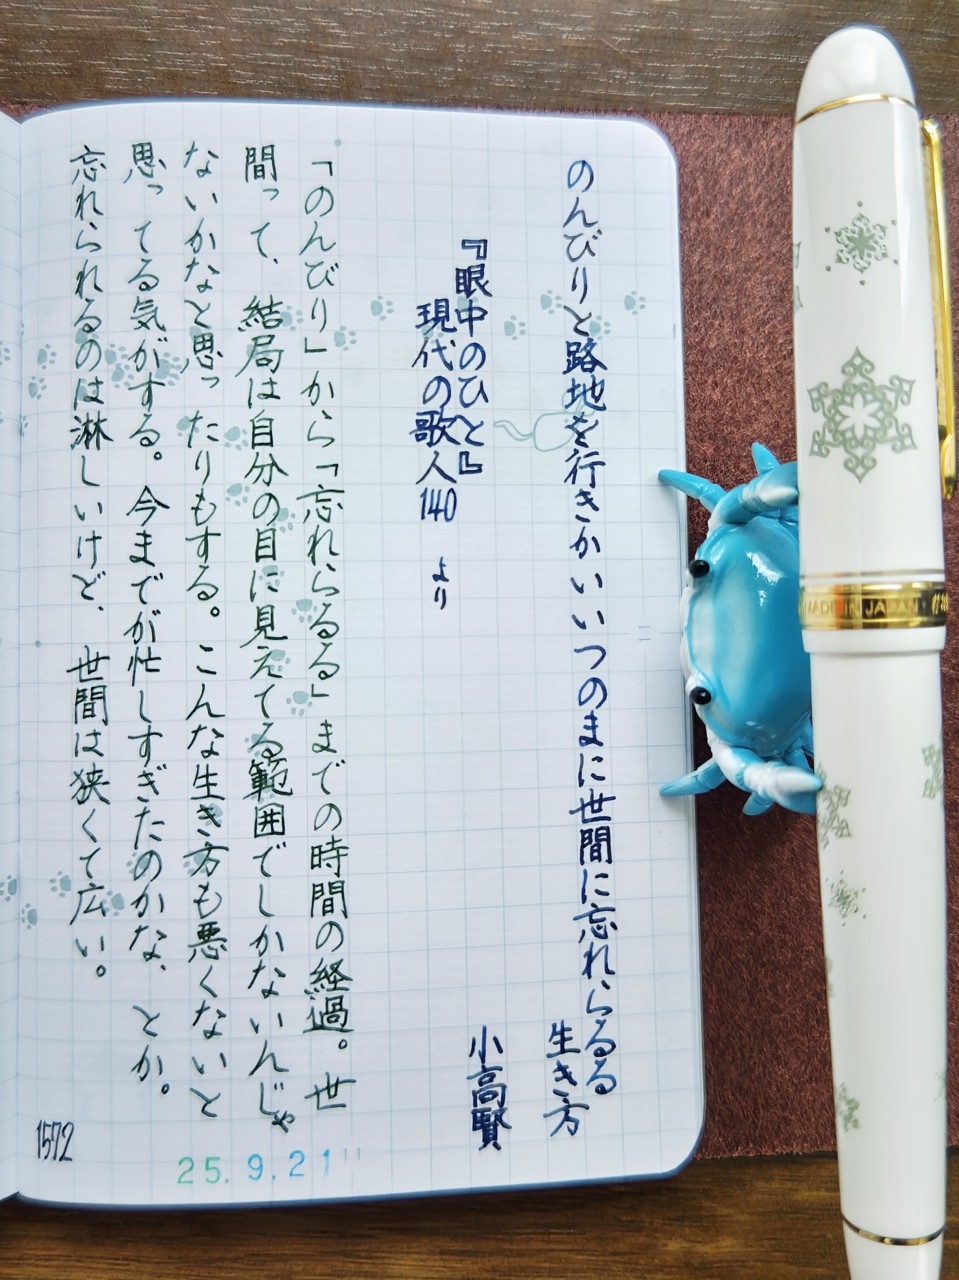 のんびりと路地を行きかいいつのまに世間に忘れらるる
生き方
小高賢
『眼中のひと』
現代の歌人140 より
「のんびり」から「忘れらるる」までの時間の経過。世
間って、結局は自分の目に見えてる範囲でしかないんじゃ
ないかなと思ったりもする。こんな生き方も悪くないと
思ってる気がする。今までが忙しすぎたのかな、とか。
忘れられるのは淋しいけど、世間は狭くて広い。
1572
25.9.21
JAPAN